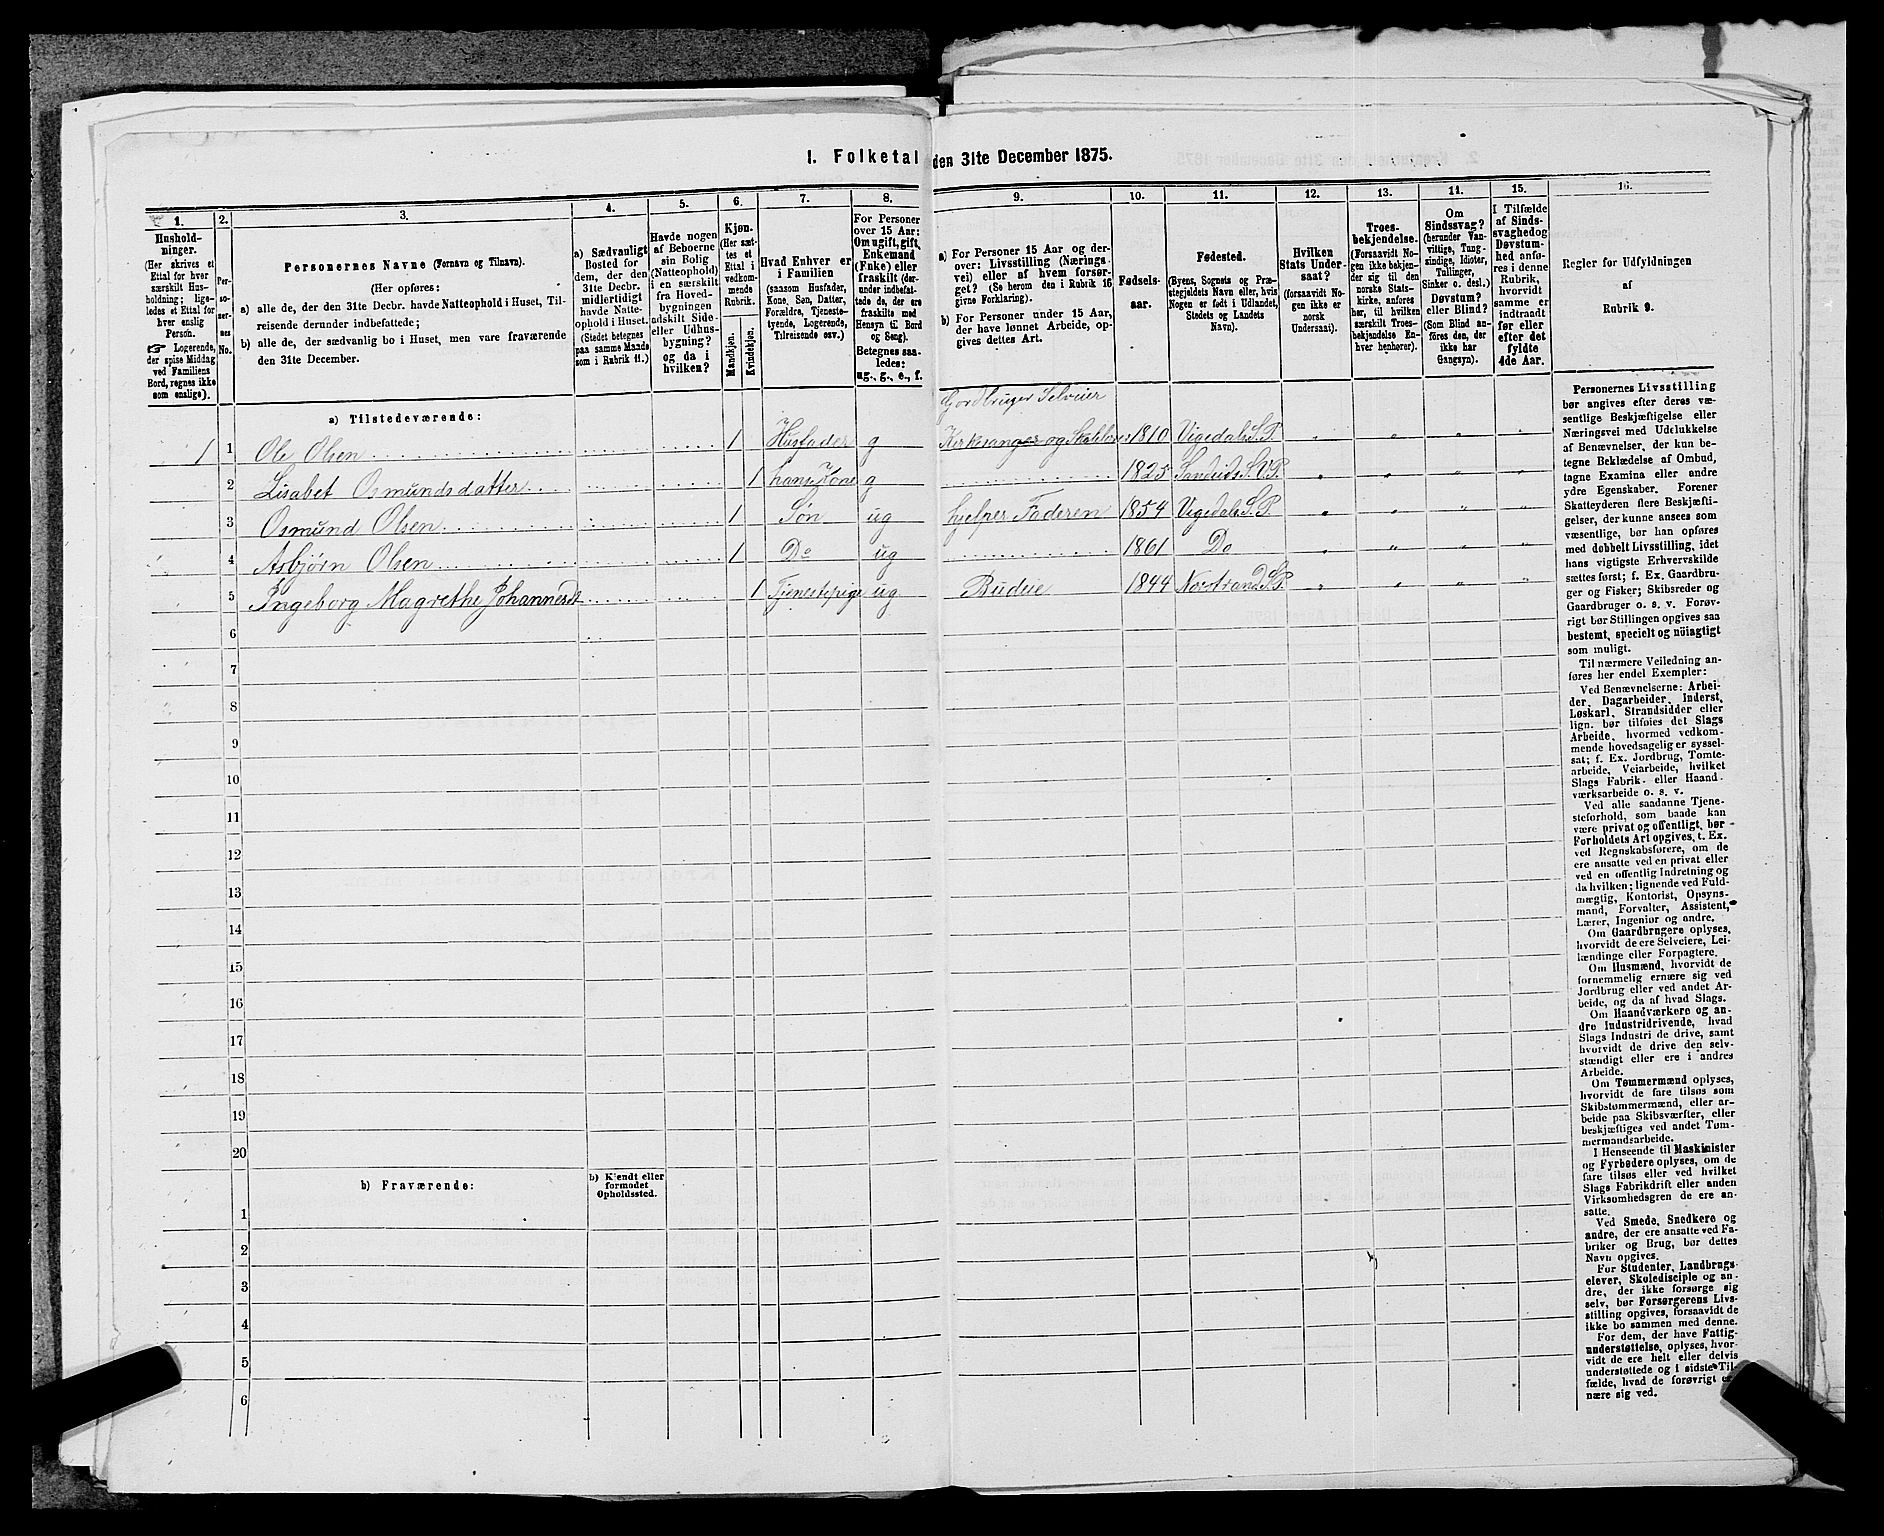 I. Folketal den 31te December 1875.
1. 2. 3. 4. 5. 6. 7. 8. 9. 10. 11. 12. 13. 14. 15. 16.
Hushold-
ninger.
(Her skrives et
Ettal for hver
særskilt Hus-
holdning; lige-
ledes et Ettal for
hver enslig
Person.
☞ Logerende,
der spise Middag
ved Familiens
Bord, regnes ikke
som enslige).
Per-
so-
ner-
nes
No.
Personernes Navne (Fornavn og Tilnavn).
(Her opføres:
a) alle de, der den 31te Decbr. havde Natteophold i Huset, Til-
reisende derunder indbefattede;
b) alle de, der sædvanlig bo i Huset, men vare fraværende
den 31te December.
a) Sædvanligt
Bosted for
dem, der den
31te Decbr.
midlertidigt
havde Natte-
ophold i Huset.
(Stedet betegnes
paa samme Maade
som i Rubrik 11.)
Havde nogen
af Beboerne
sin Bolig
(Natteophold)
i en særskilt
fra Hoved-
bygningen
adskilt Side-
eller Udhus-
bygning?
og da i
hvilken?
Kjøn.
(Her sæt-
tes et
Ettal i
vedkom-
mende
Rubrik.
Mandkjøn.
Kvindekjøn.
Hvad Enhver er
i Familien
(saasom Husfader,
Kone, Søn, Datter,
Forældre, Tjeneste-
tyende, Logerende,
Tilreisende osv.)
For Personer
over 15 Aar:
Om ugift, gift,
Enkemand
(Enke) eller
fraskilt (der-
under indbefat-
tede de, der ere
fraskilte med
Hensyn til Bord
og Seng).
Betegnes saa-
ledes:
ug., g., e., f.
a) For Personer 15 Aar og der-
over: Livsstilling (Nærings-
vei) eller af hvem forsør-
get? (Se herom den i Rubrik 16
givne Forklaring).
b) For Personer under 15 Aar,
der have lønnet Arbeide, op-
gives dettes Art.
Fødsels-
aar.
Fødested.
(Byens, Sognets og Præ-
stegjeldets Navn eller, hvis
Nogen er født i Udlandet,
Stedets og Landets
Navn).
Hvilken
Stats Under-
saat?
(forsaavidt No-
gen ikke er
norsk
Undersaat).
Troes-
bekjendelse.
(Forsaavidt No-
gen ikke bekjen-
der sig til den
norske Stats-
kirke, anføres
her, til hvilken
særskilt Troes-
bekjendelse En-
hver henhører).
Om
Sindssvag?
(herunder Van-
vittige, Tung-
sindige, Idioter,
Tallinger,
Sinker o. desl.)
Døvstum?
eller Blind?
(Som Blind an-
føres den, der
ikke har
Gangsyn).
I Tilfælde
af Sinds-
svaghed og
Døvstum-
hed anfø-
res i denne
Rubrik,
hvorvidt
samme er
indtraadt
før eller
efter det
fyldte
4de Aar.
Regler for Udfyldningen
af
Rubrik 9.
a) Tilstedeværende:
Gordbruger Selveier
1 1 Ole Olsen 1 Husfader g Kirksanger og 1810 Vigedals S. P. " " " "
2 Lisabet Osmundsdatter 1 hans Kone g 1825 Sandeids S. V. P. " " " "
3 Osmund Olsen 1 Søn ug hjelper Faderen 1854 Vigedals S. P " " " "
4 Asbjørn Olsen 1 Do ug 1861 Do " " " "
5 Ingeborg Magrethe Johannesd 1 Tjenestepige ug Budeie 1844 Norstrand S. P. " " " "
6
7
8
9
10
11
12
13
14
15
16
17
18
19
20
b) Fraværende:
b) Kjendt eller
formodet
Opholdssted.
1
2
3
4
5
6
Personernes Livsstilling
bør angives efter deres væ-
sentlige Beskjæftigelse eller
Næringsvei med Udelukkelse
af Benævnelser, der kun be-
tegne Beklædelse af Ombud,
tagne Examina eller andre
ydre Egenskaber. Forener
Skatteyderen flere Beskjæfti-
gelser, der kunne ansees som
væsentlige, bør han opføres
med dobbelt Livsstilling, idet
hans vigtigste Erhvervskilde
sættes først; f. Ex. Gaardbru-
ger og Fisker; Skibsreder og
Gaardbruger o. s. v. Forøv-
rigt bør Stillingen opgives saa
bestemt, specielt og nøiagtigt
som muligt.
Til nærmere Veiledning an-
føres her endel Exempler:
Ved Benævnelserne: Arbei-
der, Dagarbeider, Inderst,
Løskarl, Strandsidder eller
lign. bør tilføies det Slags
Arbeide, hvormed vedkom-
mende hovedsagelig er syssel-
sat; f. Ex. Jordbrug, Tomte-
arbeide, Veiarbeide, hvilket
Slags Fabrik- eller Haand-
værksarbeide o. s. v.
Ved alle saadanne Tjene-
steforhold, som baade kan
være privat og offentligt, bør
Forholdets Art opgives, t. Ex.
ved Regnskabsførere, om de
ere ansatte ved en privat eller
ved en offentlig Indretning og
da hvilken; lignende ved Fuld-
mægtig, Kontorist, Opsyns-
mand, Forvalter, Assistent,
Lærer, Ingeniør og andre.
Om Gaardbrugere oplyses,
hvorvidt de ere Selveiere, Lei-
lændinge eller Forpagtere.
Om Husmænd, hvorvidt de
fornemmelig ernære sig ved
Jordbrug eller ved andet Ar-
beide, og da af hvad Slags.
Om Haandværkere og an-
dre Industridrivende, hvad
Slags Industri de drive, samt
hvorvidt de drive den selv-
stændigt eller ere i andres
Arbeide.
Om Tømmermænd oplyses,
hvorvidt de fare tilsøs som
Skibstømmermænd, eller ar-
beide paa Skibsværfter, eller
beskjæftiges ved andet Tøm-
mermandsarbeide.
I Henseende til Maskinister
og Fyrbødere oplyses, om de
fare tilsøs eller ved hvilket
Slags Fabrikdrift eller anden
Virksomhedsgren de ere an-
satte.
Ved Smede, Snedkere og
andre, der ere ansatte ved Fa-
briker og Brug, bør dettes
Navn opgives.
For Studenter, Landbrugs-
elever, Skoledisciple og an-
dre, der ikke forsørge sig
selv, bør Forsørgerens Livs-
stilling opgives, forsaavidt de
ikke bo sammen med denne.
For dem, der have Fattig-
understøttelse, oplyses, hvor-
vidt de ere helt eller delvis
understøttede og i sidste Til-
fælde, hvad de forøvrigt er-
nære sig ved.